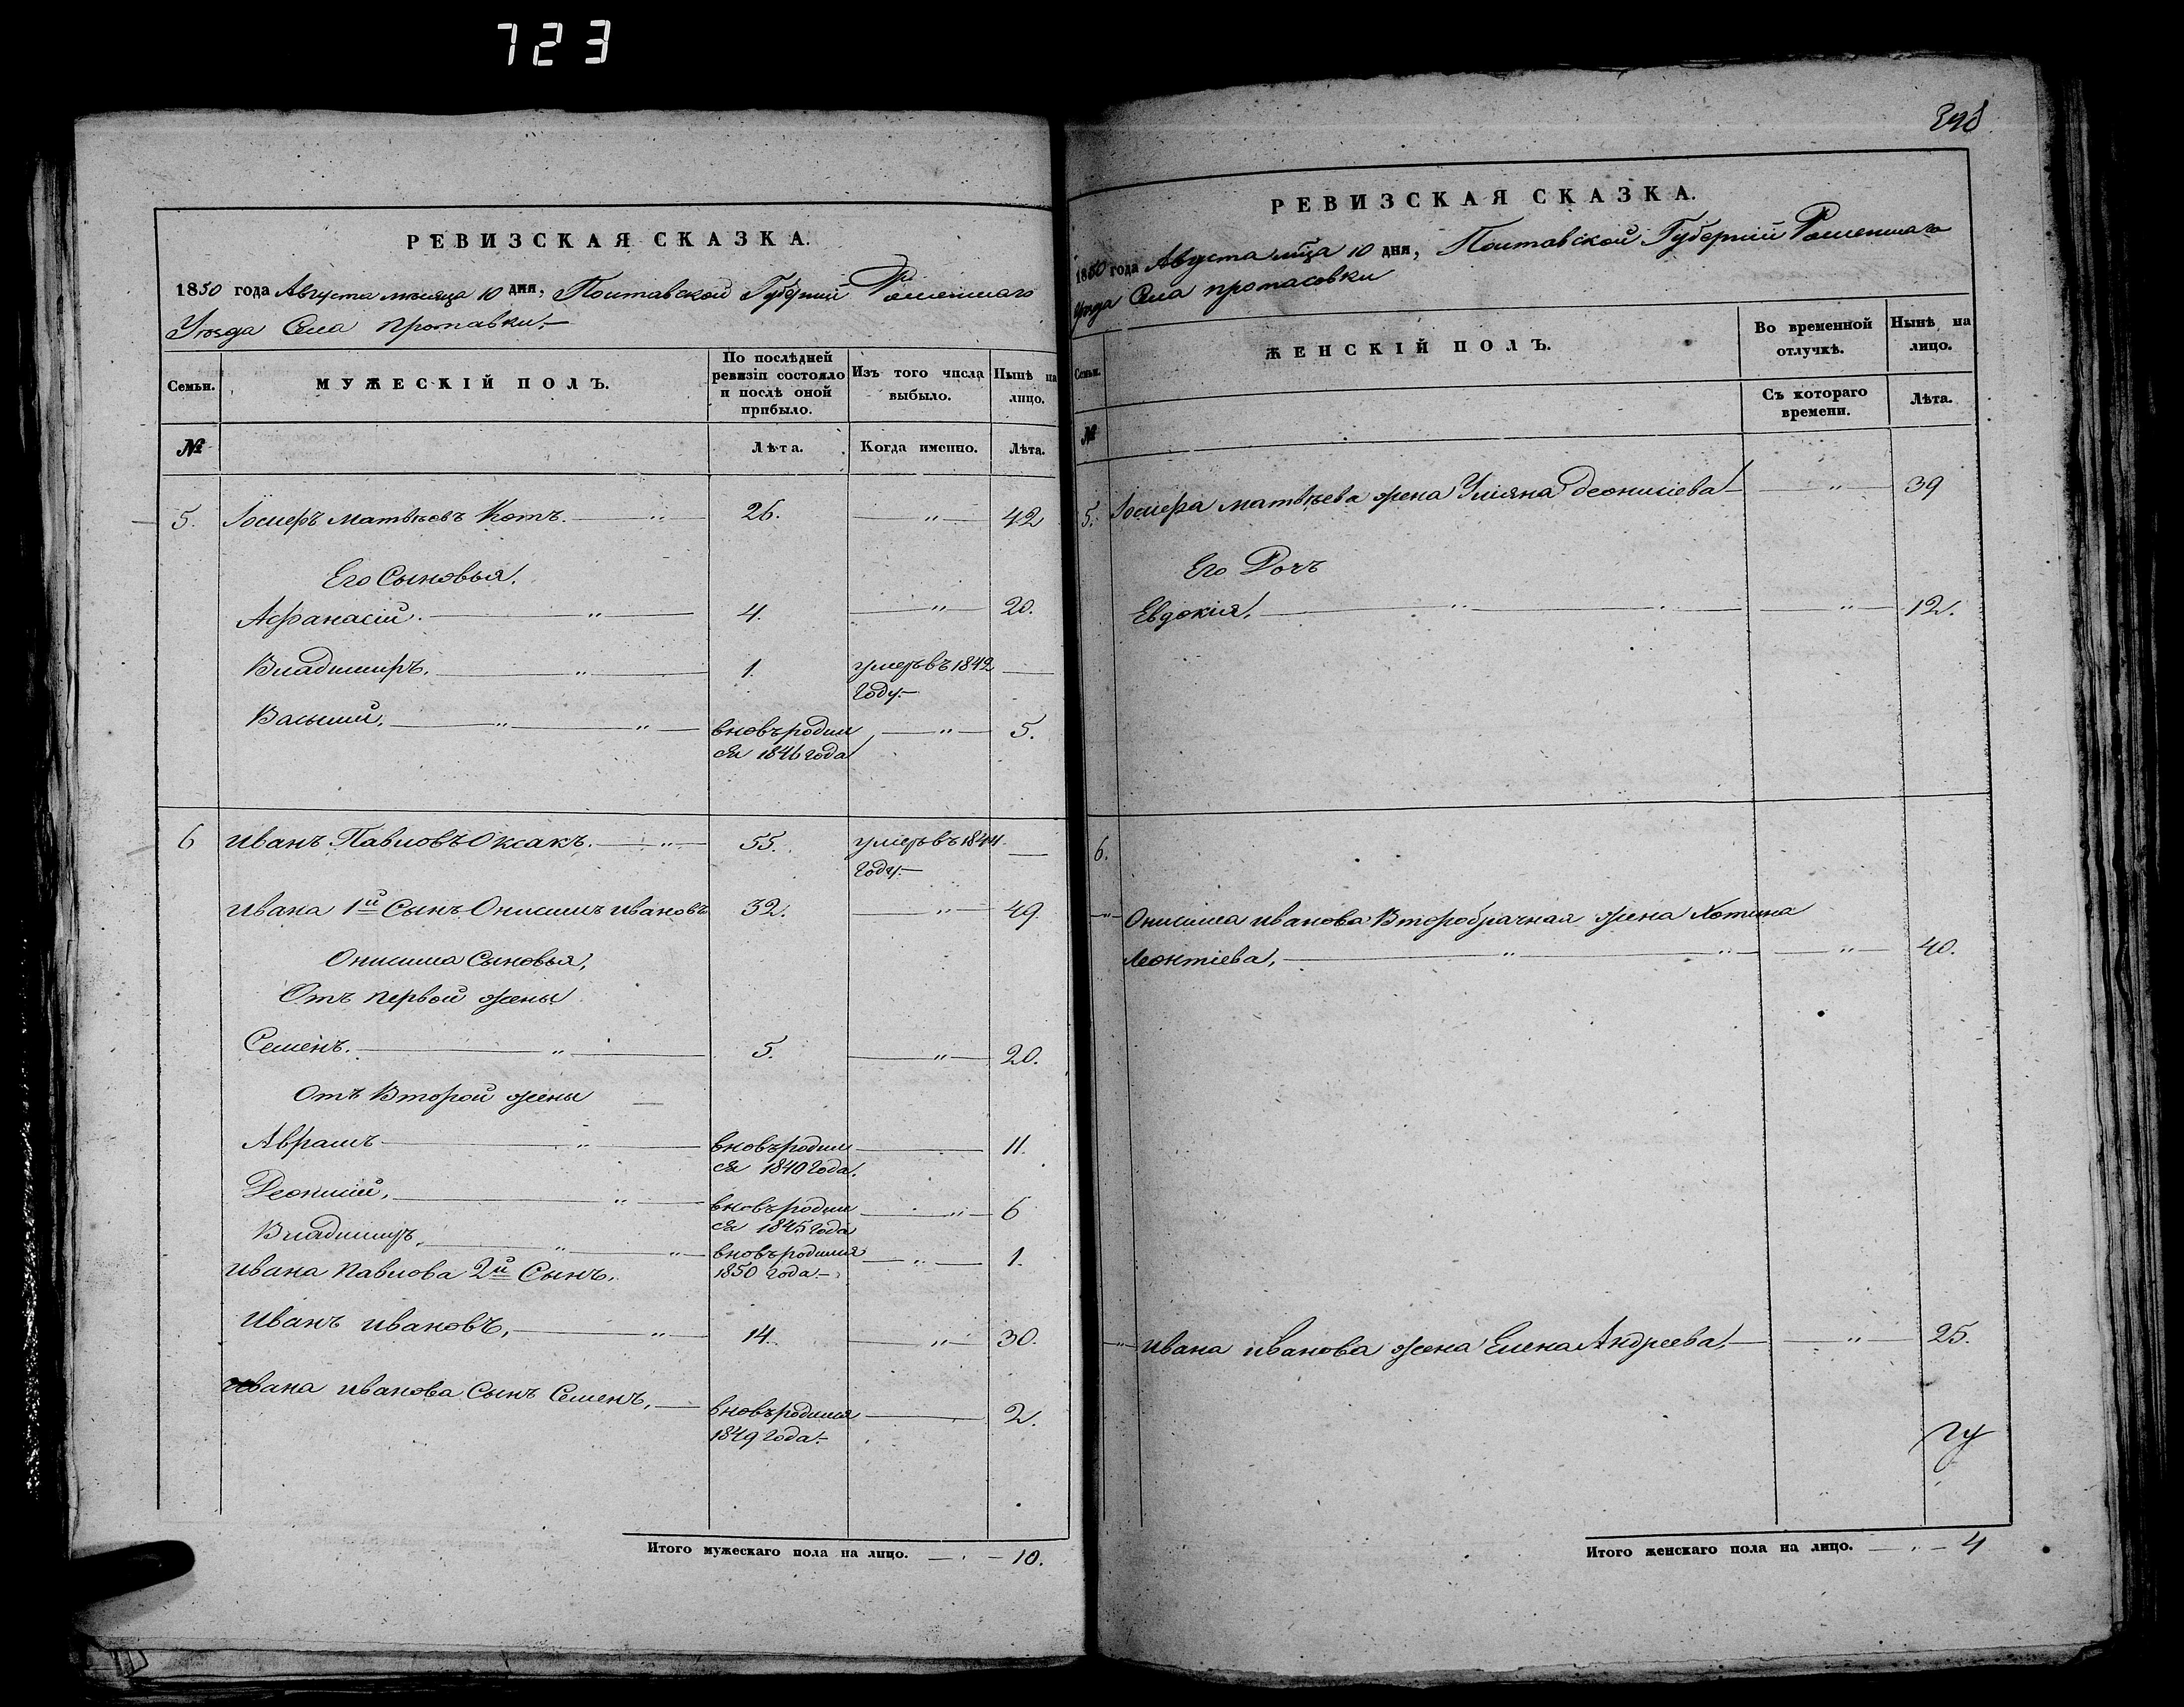 723
РЕВИЗСКАЯ СКАЗКА.
1850 года Августа месяца 10 дня, Полтавской Губернии Роменского
Уезда Села протавки,—
Семьи.
МУЖЕСКІЙ ПОЛЪ.
По послѣдней ревизіи состояло и послѣ оной прибыло.
Изъ того числа выбыло.
Нынѣ на лицо.
№
Лѣта.
Когда именно.
Лѣта.
5. Іосифъ Матвѣевъ Котъ. — „ — 26. — „ — 42
Его Сыновья,
Афанасій. — „ — 4. — „ — 20.
Владимиръ, — „ — 1. умеръ въ 1842 —
году.—
Василий, — „ — „ — вновьродил — „ — 5.
ся 1846 года
6 Иванъ Павловъ Оксакъ. — „ — 55. умеръ въ 1844 —
году.—
Ивана 1й Сынъ Онисимъ Ивановъ 32. — „ — 49
Онисима Сыновья,
Отъ первой жены
Семенъ. — „ — 5. — „ — 20.
Отъ Второй жены —
Аврамъ — „ — вновьродил — 11.
ся 1840 года.
Деонисий, — „ — вновьродил — „ — 6
ся 1845 года
Владимиръ, — „ — „ — вновьродился — „ — 1.
Ивана Павлова 2й Сынъ, 1850 года.—
Иванъ Ивановъ, — „ — 14. — „ — 30.
Ивана Иванова Сынъ Семенъ, — вновьродился — 2.
1849 года.—
Итого мужескаго пола на лицо. — 10.
РЕВИЗСКАЯ СКАЗКА.
1850 года Августа мца 10 дня, Полтавской Губерніи Роменского
Уезда Села протасовки
Семьи.
ЖЕНСКІЙ ПОЛЪ.
Во временной отлучкѣ.
Нынѣ на лицо.
№
Съ котораго времени.
Лѣта.
5. Іосифа Матвѣева жена Уліяна Деонисіева — „ — 39
Его Дочъ
Евдокія, — „ — „ — 12.
6.
— „ — Онисима Иванова Второбрачная жена Хотина
Леонтіева, — „ — „ — „ — 40.
— „ — Ивана Иванова жена Елена Андреева, — „ — 25.
Итого женскаго пола на лицо. — „ — 4